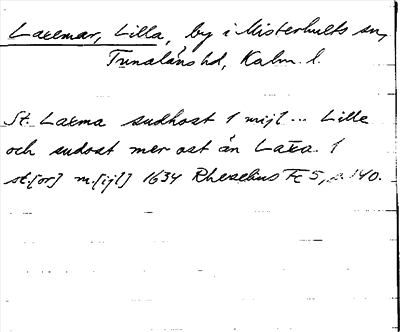 Laxemar, Lilla, by i Misterhults sn,
Tunaläns hd, Kalm. l.
St. Laxma sudhost 1 mijl... Lille
och sudost mer ost än Laxa. 1
st[or] m[ijl] 1634 Rhezelius Fc 5, s. 140.